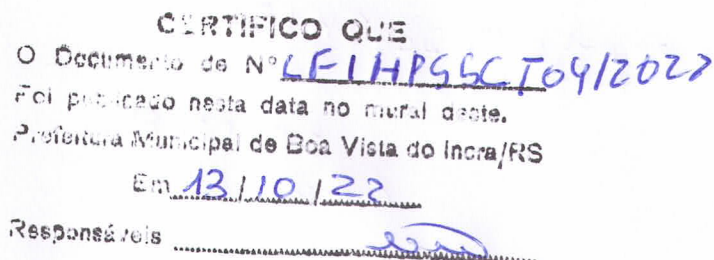 CERTIFICO QUE
O Documento de Nº LFIHPSSCT04/2022
Foi publicado nesta data no mural deste.
Prefeitura Municipal de Boa Vista do Incra/RS
Em 13/10/22
Responsáveis